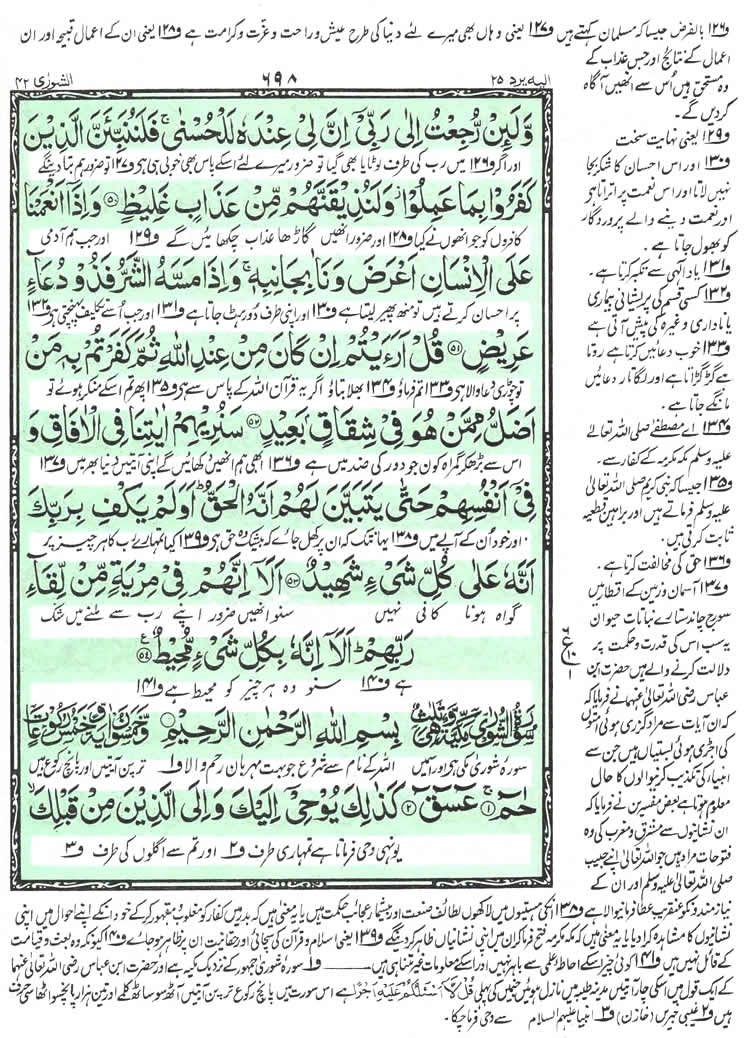 و۱۲۶ بالفرض جیسا کہ مسلمان کہتے ہیں و۱۲۷ یعنی وہاں بھی میرے لئے دنیا کی طرح عیش و راحت و عزت و کرامت ہے و۱۲۸ یعنی ان کے اعمال قبیحہ اور ان
اعمال کے نتائج اور جس عذاب کے
وہ مستحق ہیں اُس سے انھیں آگاہ
کردیں گے۔
و۱۲۹ یعنی نہایت سخت
و۱۳۰ اور اس احسان کا شکر بجا
نہیں لاتا اور اس نعمت پر اتراتا ہے
اور نعمت دینے والے پروردگار
کو بھول جاتا ہے۔
و۱۳۱ یاد الٰہی سے تکبر کرتا ہے۔
و۱۳۲ کسی قسم کی پریشانی بیماری
یا ناداری وغیرہ کی پیش آتی ہے
و۱۳۳ خوب دعائیں کرتا ہے روتا
ہے گڑگڑاتا ہے اور لگاتار دعائیں
مانگے جاتا ہے۔
و۱۳۴ اے مصطفےٰ صلی اللہ تعالیٰ
علیہ وسلم مکہ مکرمہ کے کفار سے۔
و۱۳۵ جیسا کہ نبی کریم صلی اللہ تعالیٰ
علیہ وسلم فرماتے ہیں اور براہین قطعیہ
ثابت کرتی ہیں۔
و۱۳۶ حق کی مخالفت کرتا ہے۔
و۱۳۷ آسمان و زمین کے اقطار میں
سورج چاند ستارے نباتات حیوان
یہ سب اس کی قدرت و حکمت پر
دلالت کرنے والے ہیں حضرت ابن
عباس رضی اللہ تعالیٰ عنہما نے فرمایا کہ
کہ ان آیات سے مراد گزری ہوئی امتوں
کی اجڑی ہوئی بستیاں ہیں جن سے
انبیا کی تکذیب کرنیوالوں کا حال
معلوم ہوتا ہے بعض مفسرین نے فرمایا کہ
ان نشانیوں سے مشرق و مغرب کی وہ
فتوحات مراد ہیں جو اللہ تعالیٰ اپنے حبیب
صلی اللہ تعالیٰ علیہ وسلم اور ان کے
الیہ یرد ۲۵
۶۹۸
الشورٰی ۴۲
وَّلَىِٕنْ رُّجِعْتُ اِلٰى رَبِّیْۤ اِنَّ لِیْ عِنْدَهٗ لَلْحُسْنٰىۚ فَلَنُنَبِّئَنَّ الَّذِیْنَ
اور اگر و۱۲۶ میں رب کی طرف لوٹایا بھی گیا تو ضرور میرے لئے اسکے پاس بھی خوبی ہی ہے و۱۲۷ تو ضرور ہم بتادینگے
كَفَرُوْا بِمَا عَمِلُوْا٘ وَ لَنُذِیْقَنَّهُمْ مِّنْ عَذَابٍ غَلِیْظٍ ۵۰ وَ اِذَاۤ اَنْعَمْنَا
کافروں کو جو انھوں نے کیا و۱۲۸ اور ضرور انھیں گاڑھا عذاب چکھائیں گے و۱۲۹ اور جب ہم آدمی
عَلَى الْاِنْسَانِ اَعْرَضَ وَ نَاٰ بِجَانِبِهٖۚ وَ اِذَا مَسَّهُ الشَّرُّ فَذُوْ دُعَآءٍ
پر احسان کرتے ہیں تو منھ پھیر لیتا ہے و۱۳۰ اور اپنی طرف دُور ہٹ جاتا ہے و۱۳۱ اور جب اُسے تکلیف پہنچتی ہے و۱۳۲
عَرِیْضٍ ۵۱ قُلْ اَرَءَیْتُمْ اِنْ كَانَ مِنْ عِنْدِ اللّٰهِ ثُمَّ كَفَرْتُمْ بِهٖ مَنْ
تو چوڑی دعا والا ہے و۱۳۳ تم فرماؤ و۱۳۴ بھلا بتاؤ اگر یہ قرآن اللہ کے پاس سے ہے و۱۳۵ پھر تم اسکے منکر ہوئے تو
اَضَلُّ مِمَّنْ هُوَ فِیْ شِقَاقٍۭ بَعِیْدٍ ۵۲ سَنُرِیْهِمْ اٰیٰتِنَا فِی الْاٰفَاقِ وَ
اس سے بڑھ کر گمراہ کون جو دور کی ضد میں ہے و۱۳۶ ابھی ہم انھیں دکھائیں گے اپنی آیتیں دنیا بھر میں و۱۳۷
فِیْۤ اَنْفُسِهِمْ حَتّٰى یَتَبَیَّنَ لَهُمْ اَنَّهُ الْحَقُّؕ اَوَ لَمْ یَكْفِ بِرَبِّكَ
اور خود اُن کے آپے میں و۱۳۸ یہانتک کہ ان پر کھل جائے کہ بیشک وہ حق ہے و۱۳۹ کیا تمہارے رب کا ہر چیز پر
اَنَّهٗ عَلٰى كُلِّ شَیْءٍ شَهِیْدٌ ۵۳ اَلَاۤ اِنَّهُمْ فِیْ مِرْیَةٍ مِّنْ لِّقَآءِ
گواہ ہونا کافی نہیں سنو انھیں ضرور اپنے رب سے ملنے میں شک
رَبِّهِمْؕ اَلَاۤ اِنَّهٗ بِكُلِّ شَیْءٍ مُّحِیْطٌ ۵۴
ہے و۱۴۰ سنو وہ ہر چیز کو محیط ہے و۱۴۱
سُوْرَةُ الشُّوْرٰی مَكِّیَّةٌ وَّهِیَ ثَلٰثٌ بِسْمِ اللّٰهِ الرَّحْمٰنِ الرَّحِیْمِ وَّخَمْسُوْنَ اٰیَةً وَّخَمْسُ رُكُوْعَاتٍ
سورہ شوریٰ مکی ہے اور اس میں اللہ کے نام سے شروع جو بہت مہربان رحم والا و۱ ترپن آیتیں اور پانچ رکوع ہیں
حٰمٓ ۱ عٓسٓقٓ ۲ كَذٰلِكَ یُوْحِیْۤ اِلَیْكَ وَ اِلَى الَّذِیْنَ مِنْ قَبْلِكَۙ
یونہی وحی فرماتا ہے تمہاری طرف و۲ اور تم سے اگلوں کی طرف و۳
ع
۶
۱۰
۱
نیازمندوں کو عنقریب عطا فرمانیوالا ہے و۱۳۸ انکی ہستیوں میں لاکھوں لطائف صنعت اور بیشمار عجائب حکمت ہیں یا یہ معنی ہیں کہ بدر میں کفار کو مغلوب و مقہور کرکے خود انکے اپنے احوال میں اپنی
نشانیوں کا مشاہدہ کرا دیا یا یہ معنی ہیں کہ مکہ مکرمہ فتح فرما کر ان میں اپنی نشانیاں ظاہر کردینگے و۱۳۹ یعنی اسلام و قرآن کی سچائی اور حقانیت ان پر ظاہر ہو جائے و۱۴۰ کیونکہ وہ بعث و قیامت
کے قائل نہیں ہیں و۱۴۱ کوئی چیز اسکے احاطۂ علمی سے باہر نہیں اور اسکے معلومات غیر متناہی ہیں و۱ سورہ شوریٰ جمہور کے نزدیک مکیہ ہے اور حضرت ابن عباس رضی اللہ تعالیٰ عنہما
کے ایک قول میں اسکی چار آیتیں مدینہ طیبہ میں نازل ہوئیں جنمیں کی پہلی قُلْ لَّاۤ اَسْــٴَـلُكُمْ عَلَیْهِ اَجْرًا ہے اس سورت میں پانچ رکوع ترپن آیتیں آٹھ سو ساٹھ کلمے اور تین ہزار پانچسو اٹھاسی حرف
ہیں و۲ غیبی خبریں (خازن) و۳ انبیا علیہم السلام سے وحی فرما چکا۔